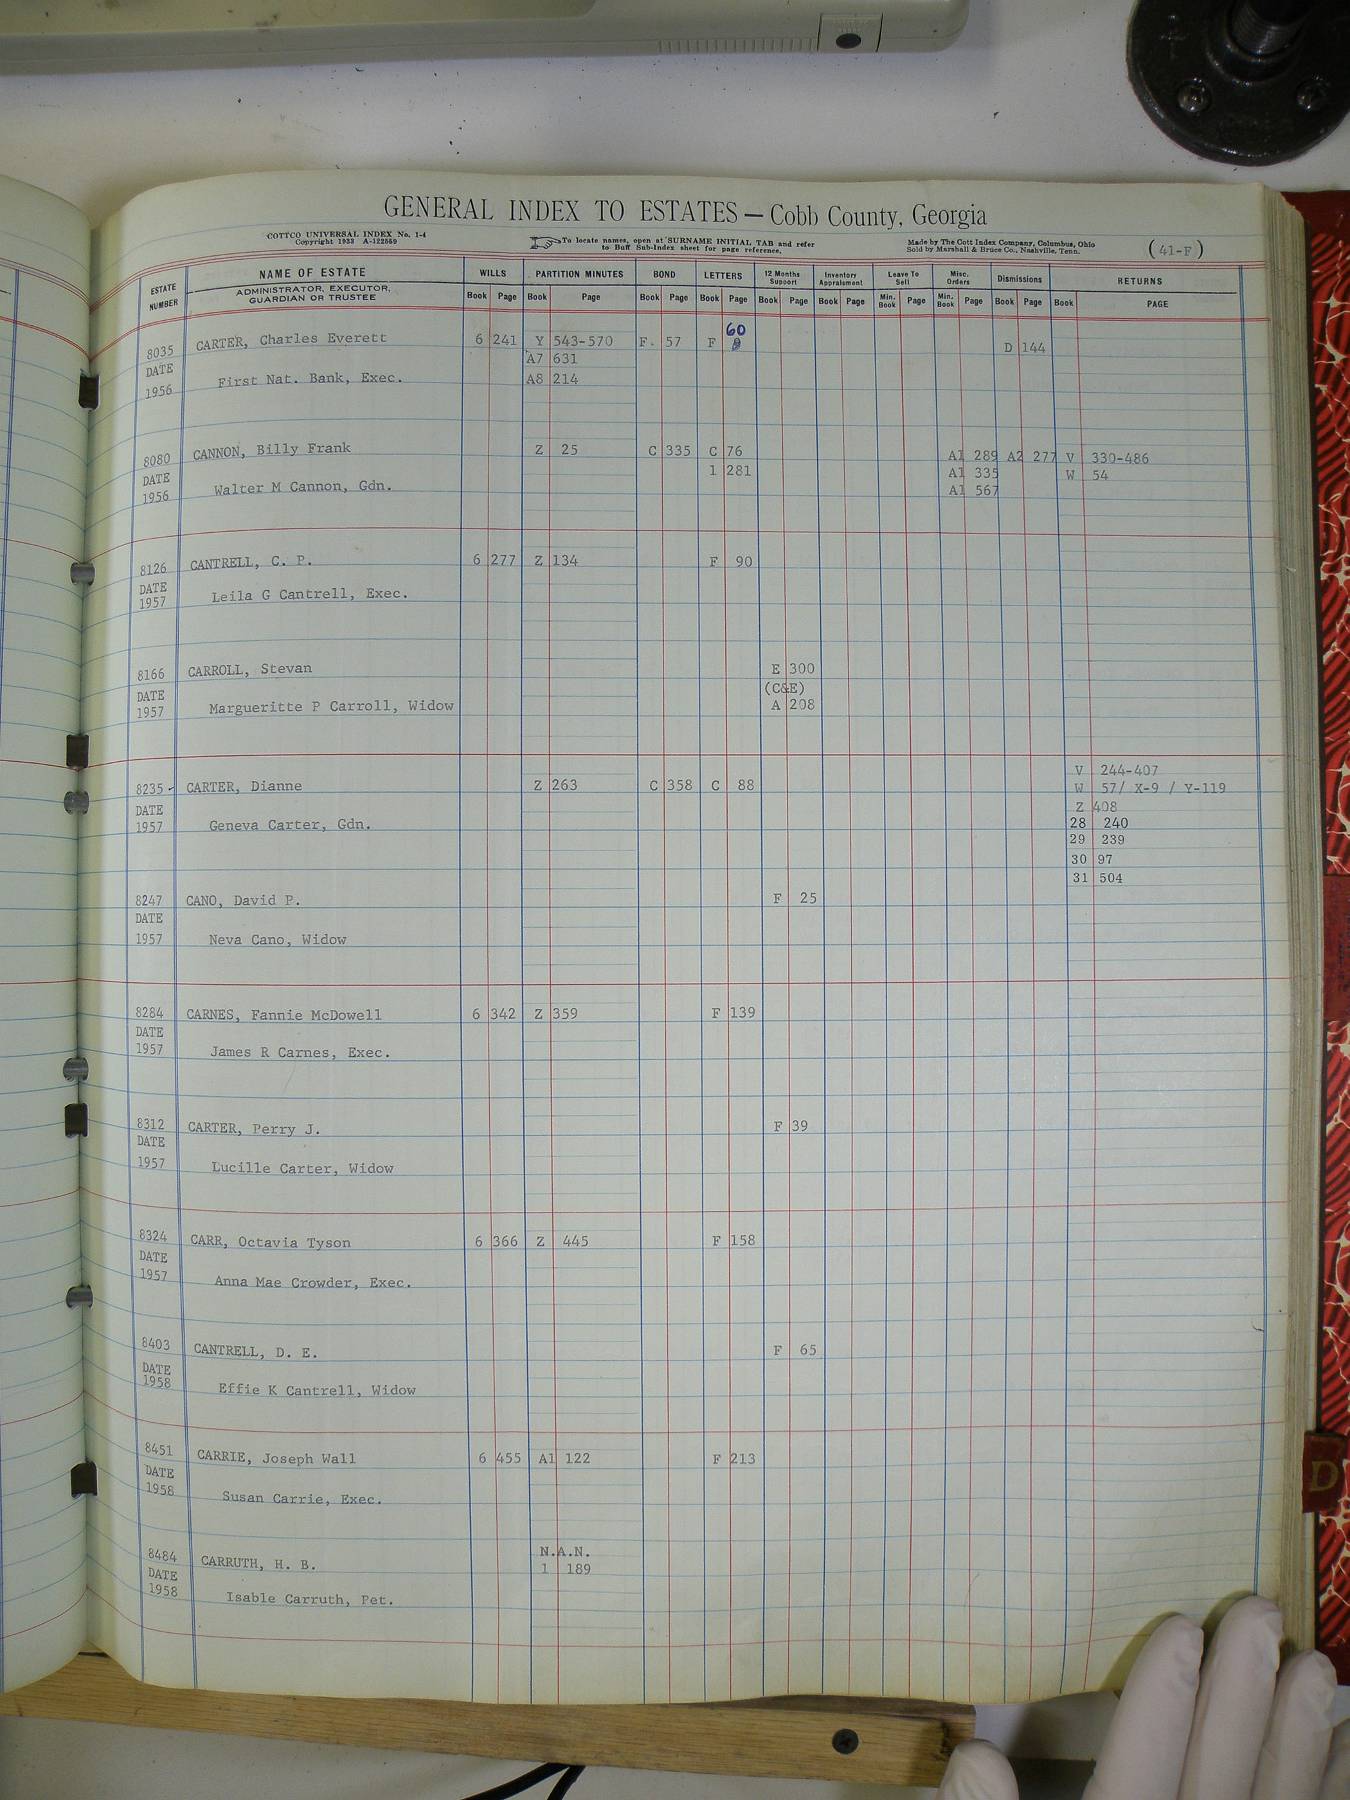 GENERAL INDEX TO ESTATES — Cobb County, Georgia
COTTCO UNIVERSAL INDEX No. 1-4
Copyright 1933 A-122559
To locate names, open at SURNAME INITIAL TAB and refer
to Buff Sub-Index sheet for page reference.
Made by The Cott Index Company, Columbus, Ohio
Sold by Marshall & Bruce Co., Nashville, Tenn.
(41-F)
ESTATE NUMBER NAME OF ESTATE WILLS PARTITION MINUTES BOND LETTERS 12 Months Support Inventory Appraisment Leave To Sell Misc. Orders Dismissions RETURNS
ADMINISTRATOR, EXECUTOR, GUARDIAN OR TRUSTEE Book Page Book Page Book Page Book Page Book Page Book Page Min. Book Page Min. Book Page Book Page Book PAGE
60
8035 CARTER, Charles Everett 6 241 Y 543-570 F. 57 F D 144
DATE A7 631
1956 First Nat. Bank, Exec. A8 214
8080 CANNON, Billy Frank Z 25 C 335 C 76 A1 289 A2 277 V 330-486
DATE 1 281 A1 335 W 54
1956 Walter M Cannon, Gdn. A1 567
8126 CANTRELL, C. P. 6 277 Z 134 F 90
DATE
1957 Leila G Cantrell, Exec.
8166 CARROLL, Stevan E 300
DATE (C&E)
1957 Margueritte P Carroll, Widow A 208
V 244-407
8235 - CARTER, Dianne Z 263 C 358 C 88 W 57/ X-9 / Y-119
DATE Z 408
1957 Geneva Carter, Gdn. 28 240
29 239
30 97
31 504
8247 CANO, David P. F 25
DATE
1957 Neva Cano, Widow
8284 CARNES, Fannie McDowell 6 342 Z 359 F 139
DATE
1957 James R Carnes, Exec.
8312 CARTER, Perry J. F 39
DATE
1957 Lucille Carter, Widow
8324 CARR, Octavia Tyson 6 366 Z 445 F 158
DATE
1957 Anna Mae Crowder, Exec.
8403 CANTRELL, D. E. F 65
DATE
1958 Effie K Cantrell, Widow
8451 CARRIE, Joseph Wall 6 455 A1 122 F 213
DATE
1958 Susan Carrie, Exec.
N.A.N.
8484 CARRUTH, H. B. 1 189
DATE
1958 Isable Carruth, Pet.
D